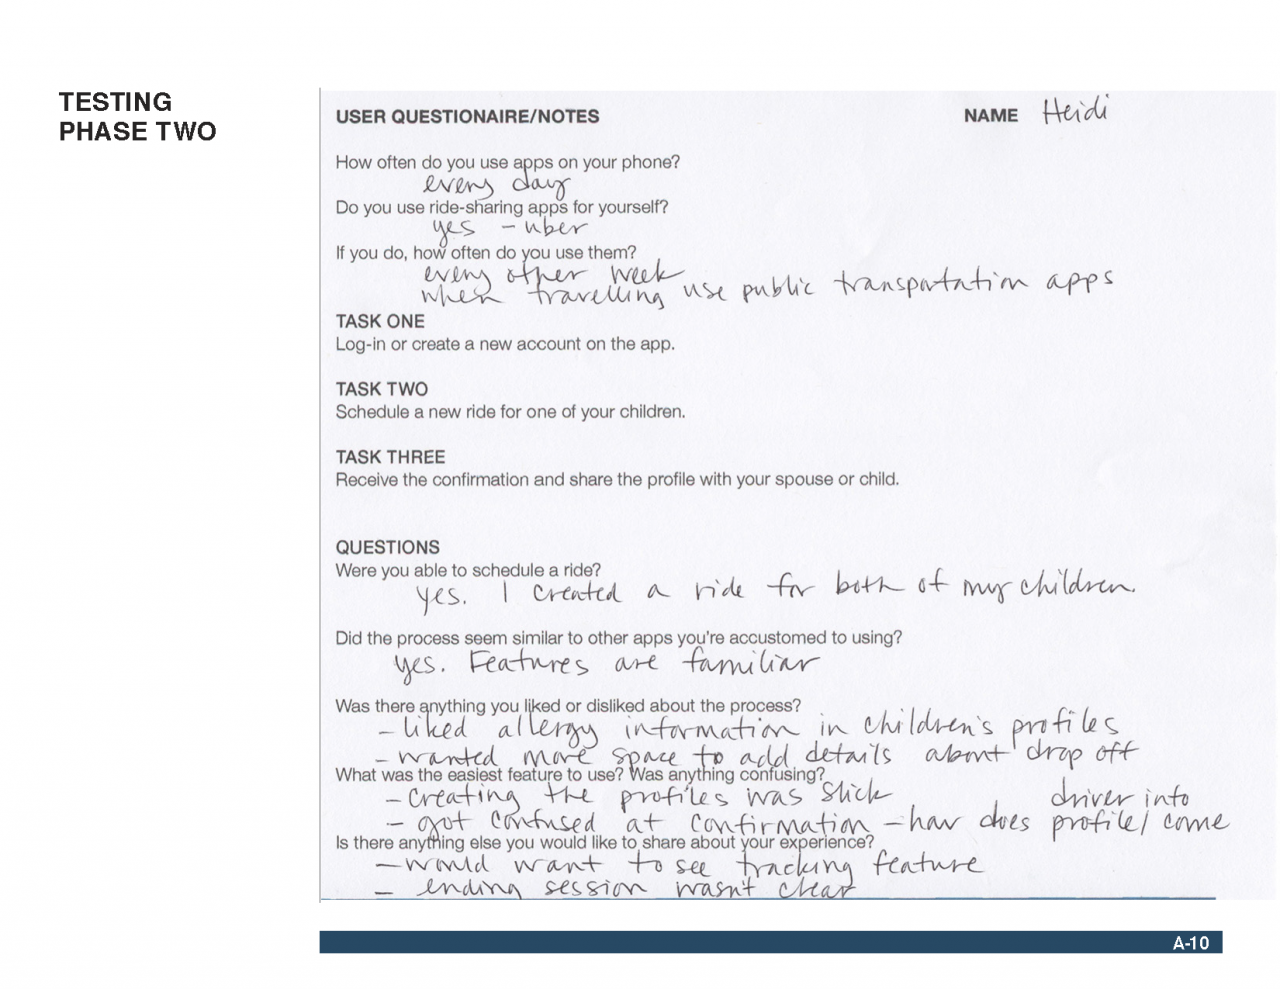 TESTING
PHASE TWO
USER QUESTIONAIRE/NOTES
NAME Heidi
How often do you use apps on your phone?
every day
Do you use ride-sharing apps for yourself?
yes - uber
If you do, how often do you use them?
every other week
when travelling use public transportation apps
TASK ONE
Log-in or create a new account on the app.
TASK TWO
Schedule a new ride for one of your children.
TASK THREE
Receive the confirmation and share the profile with your spouse or child.
QUESTIONS
Were you able to schedule a ride?
yes. I created a ride for both of my children.
Did the process seem similar to other apps you're accustomed to using?
yes. Features are familiar
Was there anything you liked or disliked about the process?
- liked allergy information in children's profiles
- wanted more space to add details about drop off
What was the easiest feature to use? Was anything confusing?
- creating the profiles was slick
driver info
- got confused at confirmation - how does profile/ come
Is there anything else you would like to share about your experience?
- would want to see tracking feature
- ending session wasn't clear
A-10